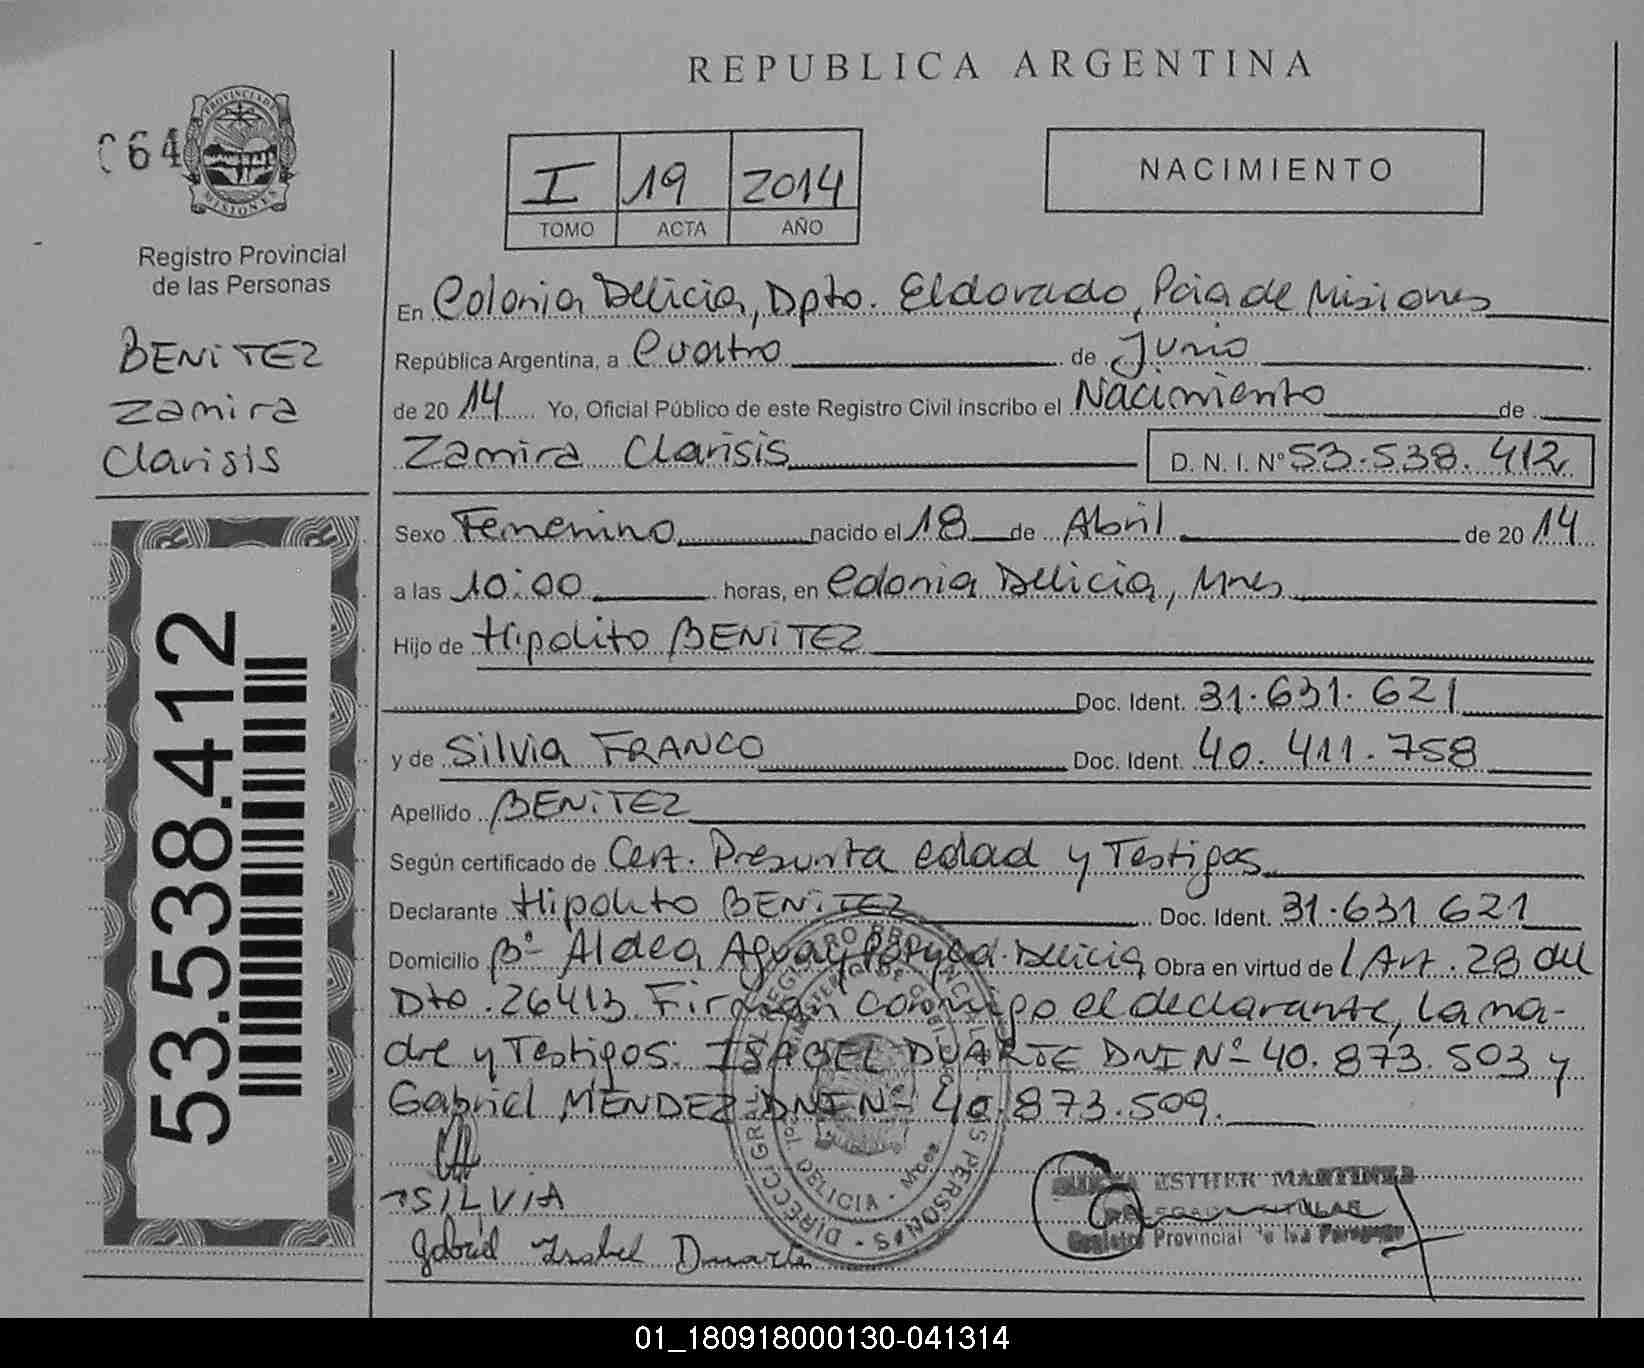 REPUBLICA ARGENTINA
064
PROVINCIA DE MISIONES
Registro Provincial
de las Personas
I 19 2014
TOMO ACTA AÑO
NACIMIENTO
BENITEZ
Zamira
Clarisis
53.538.412
En Colonia Delicia, Dpto. Eldorado, Pcia de Misiones
República Argentina, a Cuatro de Junio
de 2014 Yo, Oficial Público de este Registro Civil inscribo el Nacimiento de
Zamira Clarisis D. N. I. Nº 53.538.412
Sexo Femenino nacido el 18 de Abril de 2014
a las 10:00 horas, en Colonia Delicia, Mnes
Hijo de Hipolito BENITEZ
Doc. Ident. 31.631.621
y de Silvia FRANCO Doc. Ident. 40.411.758
Apellido BENITEZ
Según certificado de Cert. Presunta edad y Testigos
Declarante Hipolito BENITEZ Doc. Ident. 31.631.621
Domicilio Bº Aldea Aguay Delicia Obra en virtud de l Art. 28 del
Dto. 26413 Firman conmigo el declarante, la ma-
dre y Testigos: ISABEL DUARTE DNI Nº 40.873.503 y
Gabriel MENDEZ DNI Nº 40.873.509.
SILVIA
Gabriel Isabel Duarte
ESTHER MARTINEZ
Registro Provincial de las Personas
DELICIA
01_180918000130-041314